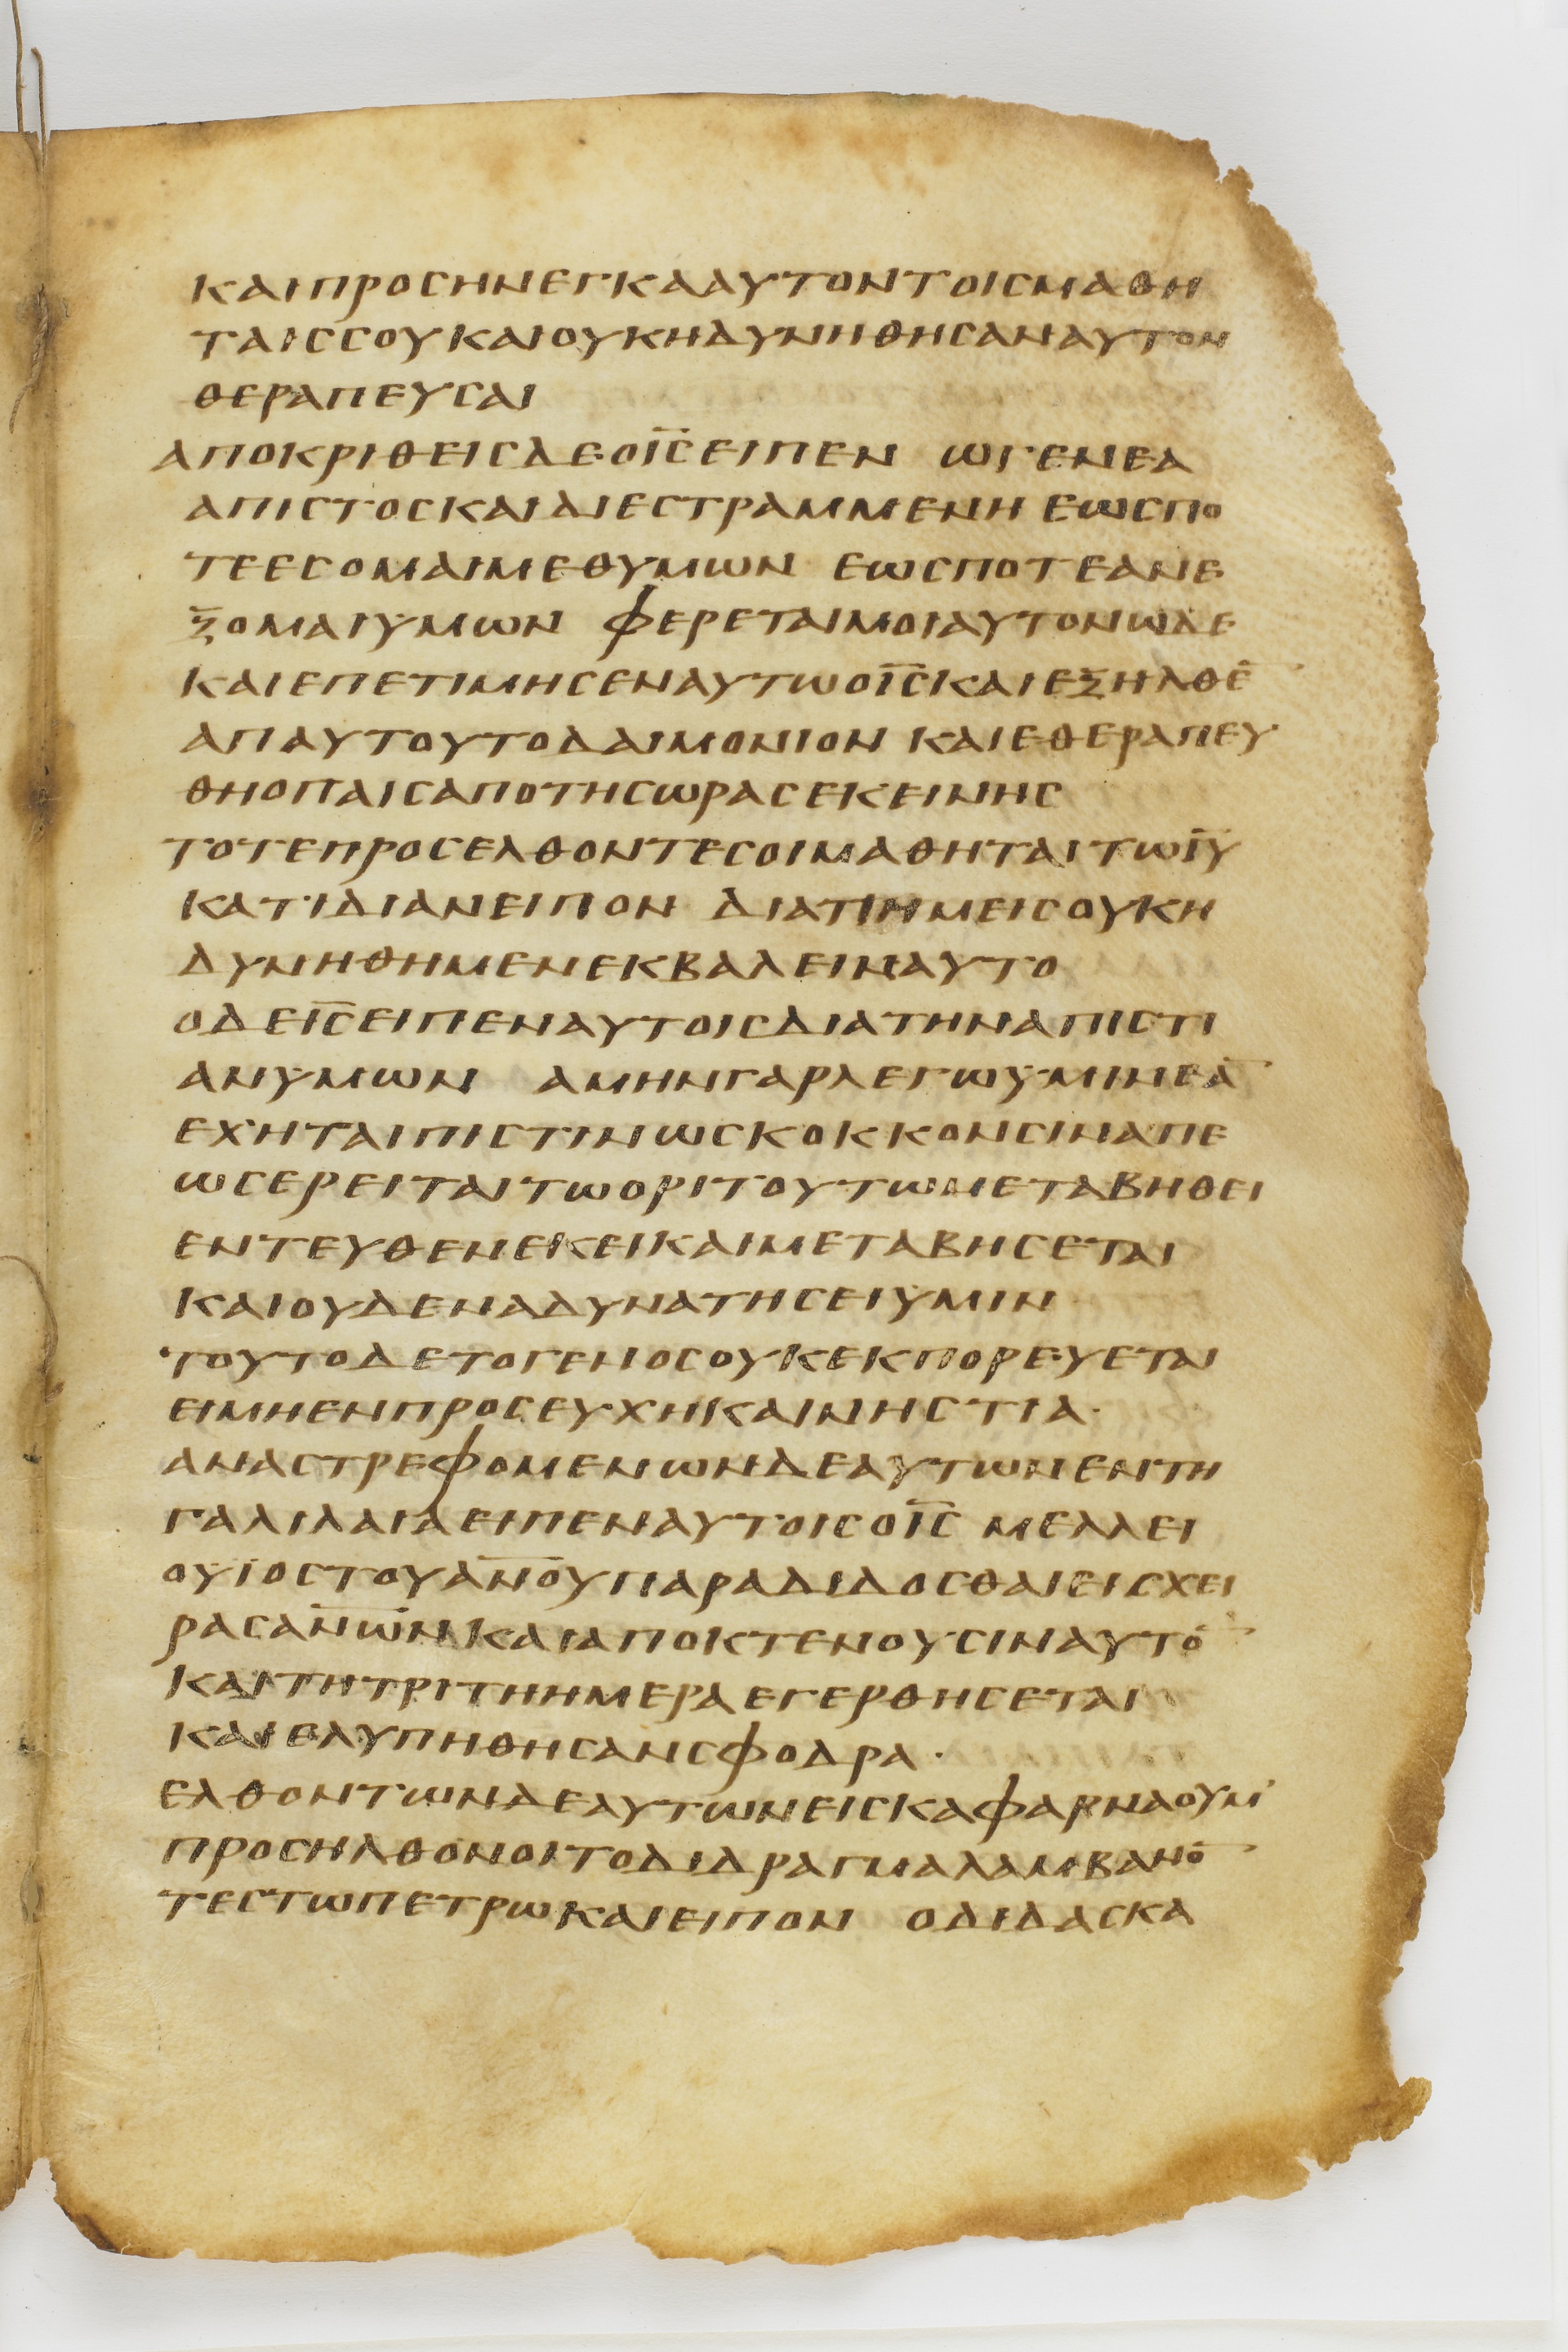 ΚΑΙΠΡΟCΗΝΕΓΚΑΑΥΤΟΝΤΟΙCΜΑΘΗ
ΤΑΙCCΟΥΚΑΙΟΥΚΗΔΥΝΗΘΗCΑΝΑΥΤΟΝ
ΘΕΡΑΠΕΥCΑΙ
ΑΠΟΚΡΙΘΕΙCΔΕΟΙ̅C̅ΕΙΠΕΝ ΩΓΕΝΕΑ
ΑΠΙCΤΟCΚΑΙΔΙΕCΤΡΑΜΜΕΝΗ ΕΩCΠΟ
ΤΕΕCΟΜΑΙΜΕΘΥΜΩΝ ΕΩCΠΟΤΕΑΝΕ
ΞΟΜΑΙΥΜΩΝ ΦΕΡΕΤΑΙΜΟΙΑΥΤΟΝΩΔΕ
ΚΑΙΕΠΕΤΙΜΗCΕΝΑΥΤΩΟΙ̅C̅ΚΑΙΕΞΗΛΘΕ̅
ΑΠΑΥΤΟΥΤΟΔΑΙΜΟΝΙΟΝ ΚΑΙΕΘΕΡΑΠΕΥ
ΘΗΟΠΑΙCΑΠΟΤΗCΩΡΑCΕΚΕΙΝΗC
ΤΟΤΕΠΡΟCΕΛΘΟΝΤΕCΟΙΜΑΘΗΤΑΙΤΩΙ̅Υ̅
ΚΑΤΙΔΙΑΝΕΙΠΟΝ ΔΙΑΤΙΗΜΕΙCΟΥΚΗ
ΔΥΝΗΘΗΜΕΝΕΚΒΑΛΕΙΝΑΥΤΟ
ΟΔΕΙ̅C̅ΕΙΠΕΝΑΥΤΟΙCΔΙΑΤΗΝΑΠΙCΤΙ
ΑΝΥΜΩΝ ΑΜΗΝΓΑΡΛΕΓΩΥΜΙΝΕΑ̅
ΕΧΗΤΑΙΠΙCΤΙΝΩCΚΟΚΚΟΝCΙΝΑΠΕ
ΩCΕΡΕΙΤΑΙΤΩΟΡΙΤΟΥΤΩΜΕΤΑΒΗΘΕΙ
ΕΝΤΕΥΘΕΝΕΚΕΙΚΑΙΜΕΤΑΒΗCΕΤΑΙ
ΚΑΙΟΥΔΕΝΑΔΥΝΑΤΗCΕΙΥΜΙΝ
ΤΟΥΤΟΔΕΤΟΓΕΝΟCΟΥΚΕΚΠΟΡΕΥΕΤΑΙ
ΕΙΜΗΕΝΠΡΟCΕΥΧΗΚΑΙΝΗCΤΙΑ·
ΑΝΑCΤΡΕΦΟΜΕΝΩΝΔΕΑΥΤΩΝΕΝΤΗ
ΓΑΛΙΛΑΙΑΕΙΠΕΝΑΥΤΟΙCΟΙ̅C̅ ΜΕΛΛΕΙ
ΟΥΙΟCΤΟΥΑ̅Ν̅Ο̅Υ̅ΠΑΡΑΔΙΔΟCΘΑΙΕΙCΧΕΙ
ΡΑCΑ̅Ν̅Ω̅Ν̅ΚΑΙΑΠΟΚΤΕΝΟΥCΙΝΑΥΤΟ̅
ΚΑΙΤΗΤΡΙΤΗΗΜΕΡΑΕΓΕΡΘΗCΕΤΑΙ
ΚΑΙΕΛΥΠΗΘΗCΑΝCΦΟΔΡΑ·
ΕΛΘΟΝΤΩΝΔΕΑΥΤΩΝΕΙCΚΑΦΑΡΝΑΟΥΜ
ΠΡΟCΗΛΘΟΝΟΙΤΟΔΙΔΡΑΓΜΑΛΑΜΒΑΝΟ̅
ΤΕCΤΩΠΕΤΡΩΚΑΙΕΙΠΟΝ ΟΔΙΔΑCΚΑ